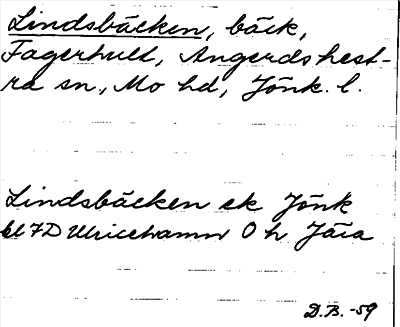 Lindsbäcken, bäck,
Fagerhult, Angerdshest-
ra sn., Mo hd, Jönk. l.
Lindsbäcken ek Jönk
bl 7D Ulricehamn O h Jära
D.B. -59